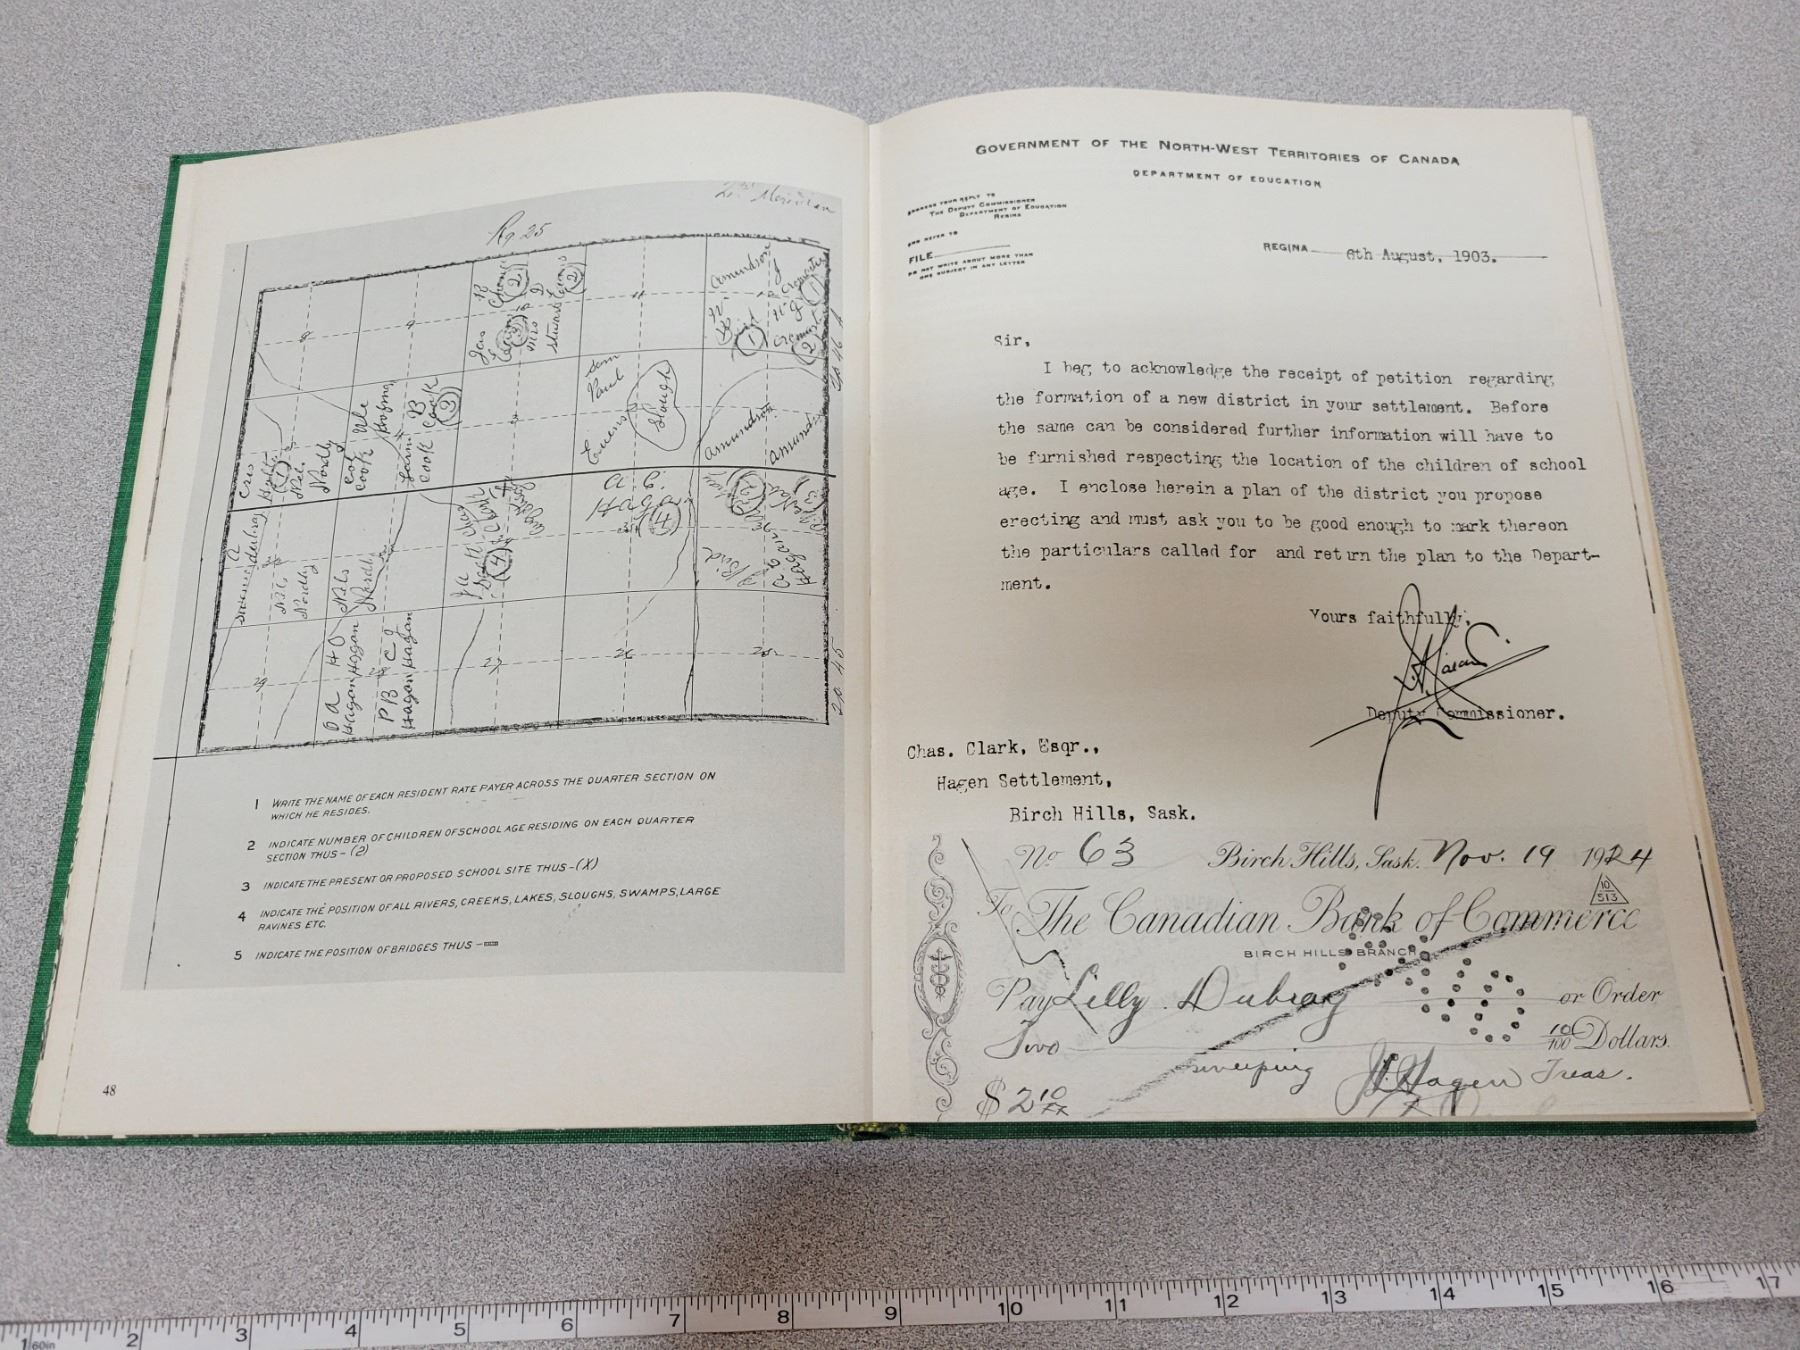 Rg 25
Meridian
Amundson
Slough
Sam
Paul
Amundson
Cook
Cook
Nordby
Nels
Nordby
Nels
Hagan
Hagan
Hagan
Hagan
27
26
29
1 WRITE THE NAME OF EACH RESIDENT RATE PAYER ACROSS THE QUARTER SECTION ON
WHICH HE RESIDES.
2 INDICATE NUMBER OF CHILDREN OF SCHOOL AGE RESIDING ON EACH QUARTER
SECTION THUS-(2)
3 INDICATE THE PRESENT OR PROPOSED SCHOOL SITE THUS-(X)
4 INDICATE THE POSITION OF ALL RIVERS, CREEKS, LAKES, SLOUGHS, SWAMPS, LARGE
RAVINES ETC.
5 INDICATE THE POSITION OF BRIDGES THUS -
48
GOVERNMENT OF THE NORTH-WEST TERRITORIES OF CANADA
DEPARTMENT OF EDUCATION
ADDRESS YOUR REPLY TO
THE DEPUTY COMMISSIONER
DEPARTMENT OF EDUCATION
REGINA
AND REFER TO
FILE
DO NOT WRITE ABOUT MORE THAN
ONE SUBJECT IN ANY LETTER
REGINA 6th August, 1903.
Sir,
I beg to acknowledge the receipt of petition regarding
the formation of a new district in your settlement. Before
the same can be considered further information will have to
be furnished respecting the location of the children of school
age. I enclose herein a plan of the district you propose
erecting and must ask you to be good enough to mark thereon
the particulars called for and return the plan to the Depart-
ment.
Yours faithfully,
Deputy Commissioner.
Chas. Clark, Esqr.,
Hagen Settlement,
Birch Hills, Sask.
No 63 Birch Hills, Sask. Nov. 19 1924
10
513
To The Canadian Bank of Commerce
BIRCH HILLS BRANCH
Pay Lilly Dubray or Order
Two 10/100 Dollars
sweeping Hagen Treas.
$ 2 10/xx
1 2 3 4 5 6 7 8 9 10 11 12 13 14 15 16 17
60in